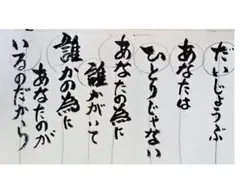 だいじょうぶ
あなたは
ひとりじゃない
あなたの為に
誰かがいて
誰かの為に
あなたが
いるのだから